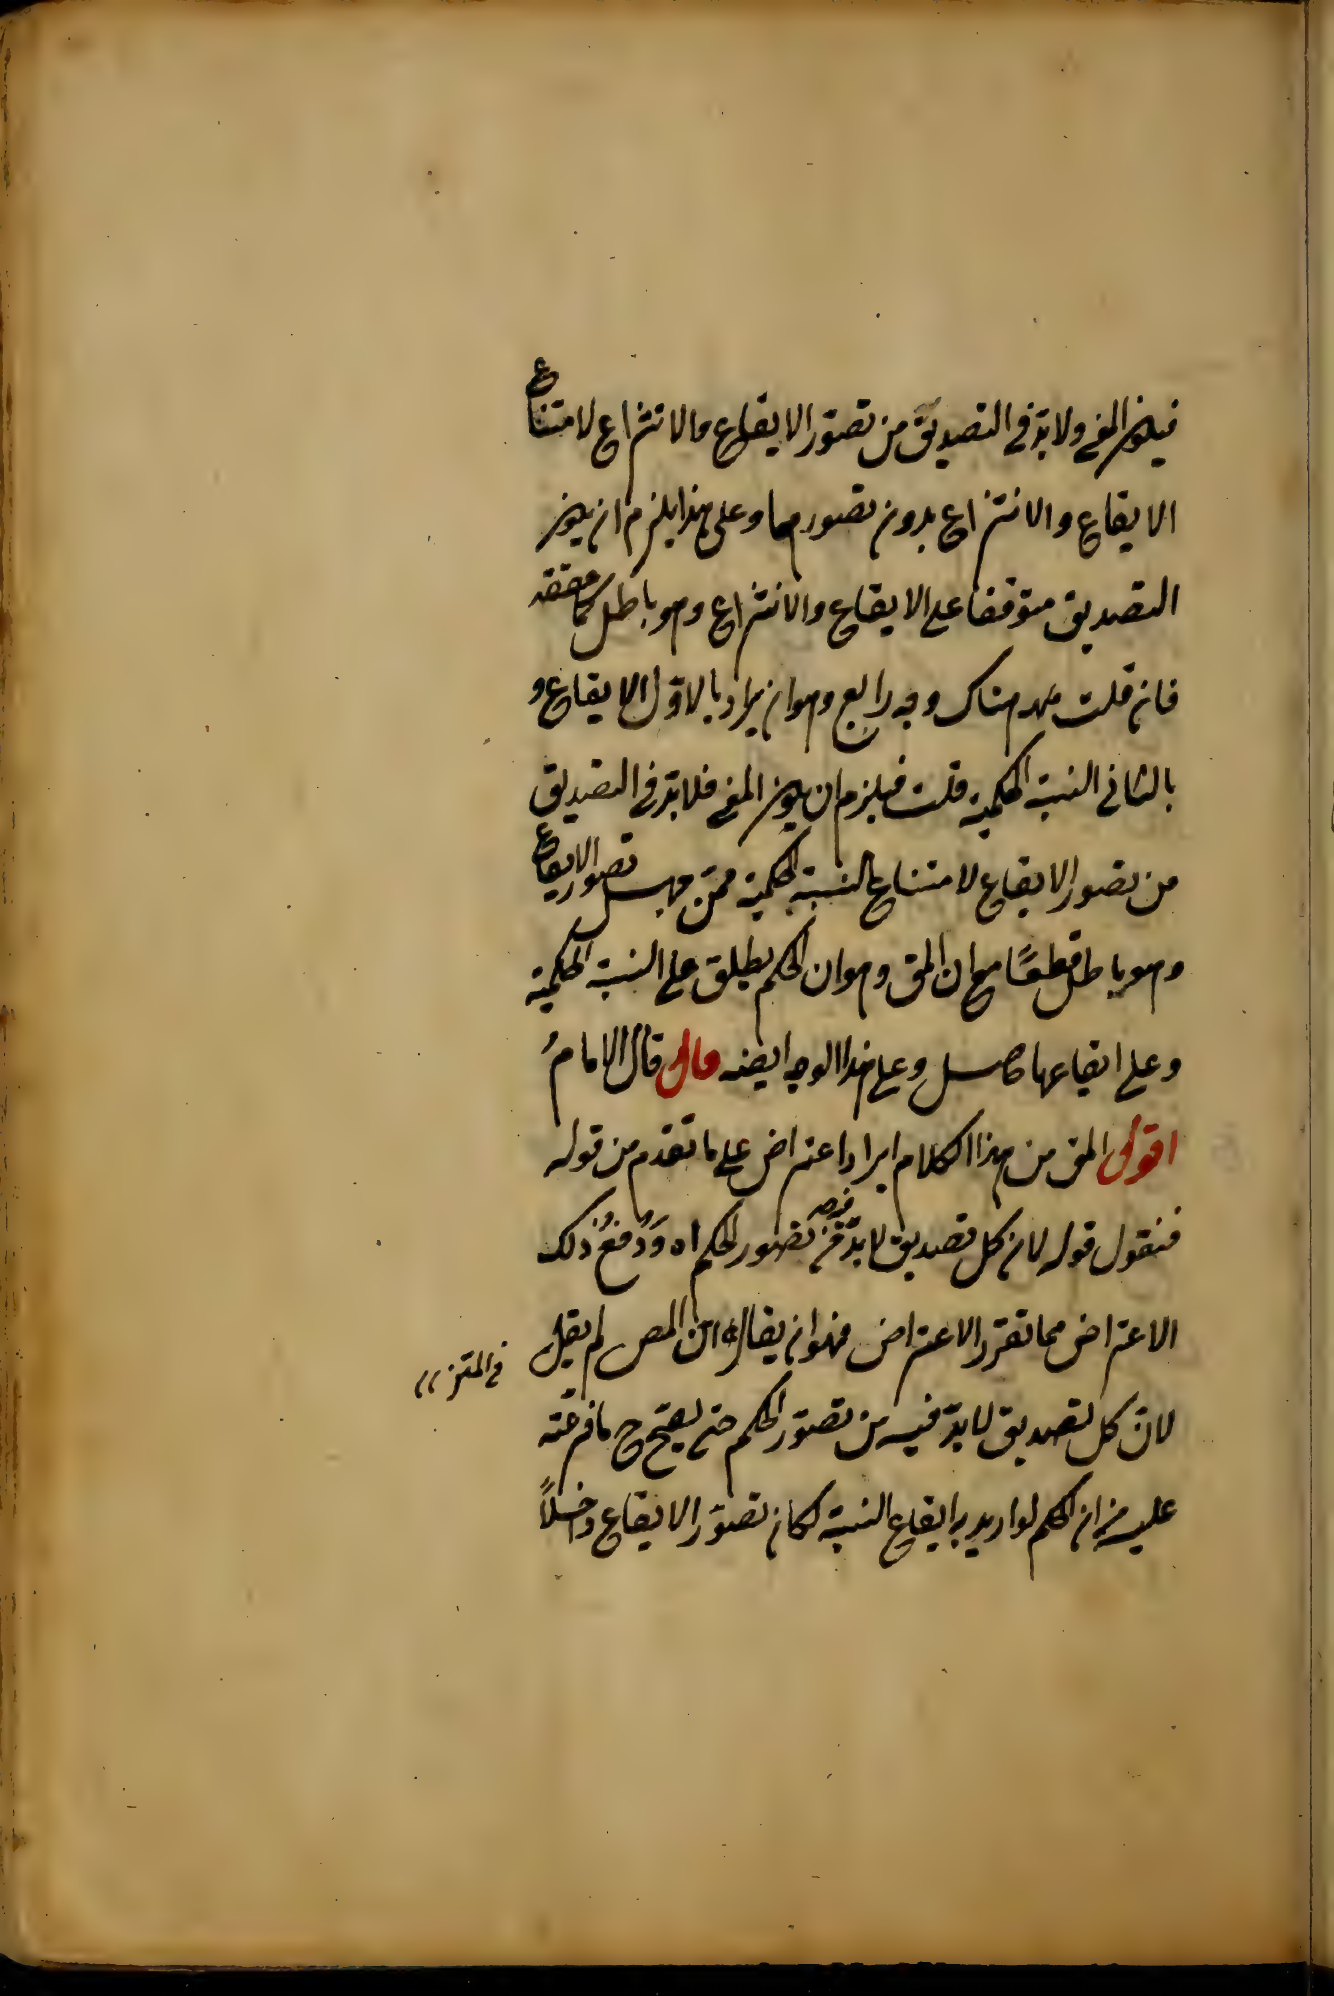 فيكون المعنى ولا بدّ في التصديق من تصوّر الايقاع والانتزاع لامتناع
الايقاع والانتزاع بدون تصورهما وعلى هذا يلزم ان يكون
التصديق متوقفا على الايقاع والانتزاع وهو باطل كما حققه
فان قلت هناك وجه رابع وهو ان يراد بالاوّل الايقاع و
بالثانى النسبة الحكمية قلت فيلزم ان يكون المعنى فلا بدّ في التصديق
من تصور الايقاع لامتناع النسبة الحكمية ممّن جهل تصور الايقاع
وهو باطل قطعًا مع ان المق وهو ان الحكم يطلق على النسبة الحكمية
وعلى ايقاعها حاصل وعلى هذا الوجه ايضه قال قال الامامُ
اقول المق من هذا الكلام ايراد اعتراض على ما تقدم من قوله
فنقول قوله لان كل تصديق لا بدّ فيه من تصور الحكم اه وَدُفعُ ذلك
الاعتراض مما تقرر الاعتراض فهو ان يقال انّ المص لم يقل
فى المتن
لانّ كل تصديق لا بدّ فيه من تصوّر الحكم حتى يصحّ ح ما فرعته
عليه من ان الحكم لو اريد به ايقاع النسبة لكان تصوّر الايقاع داخلًا